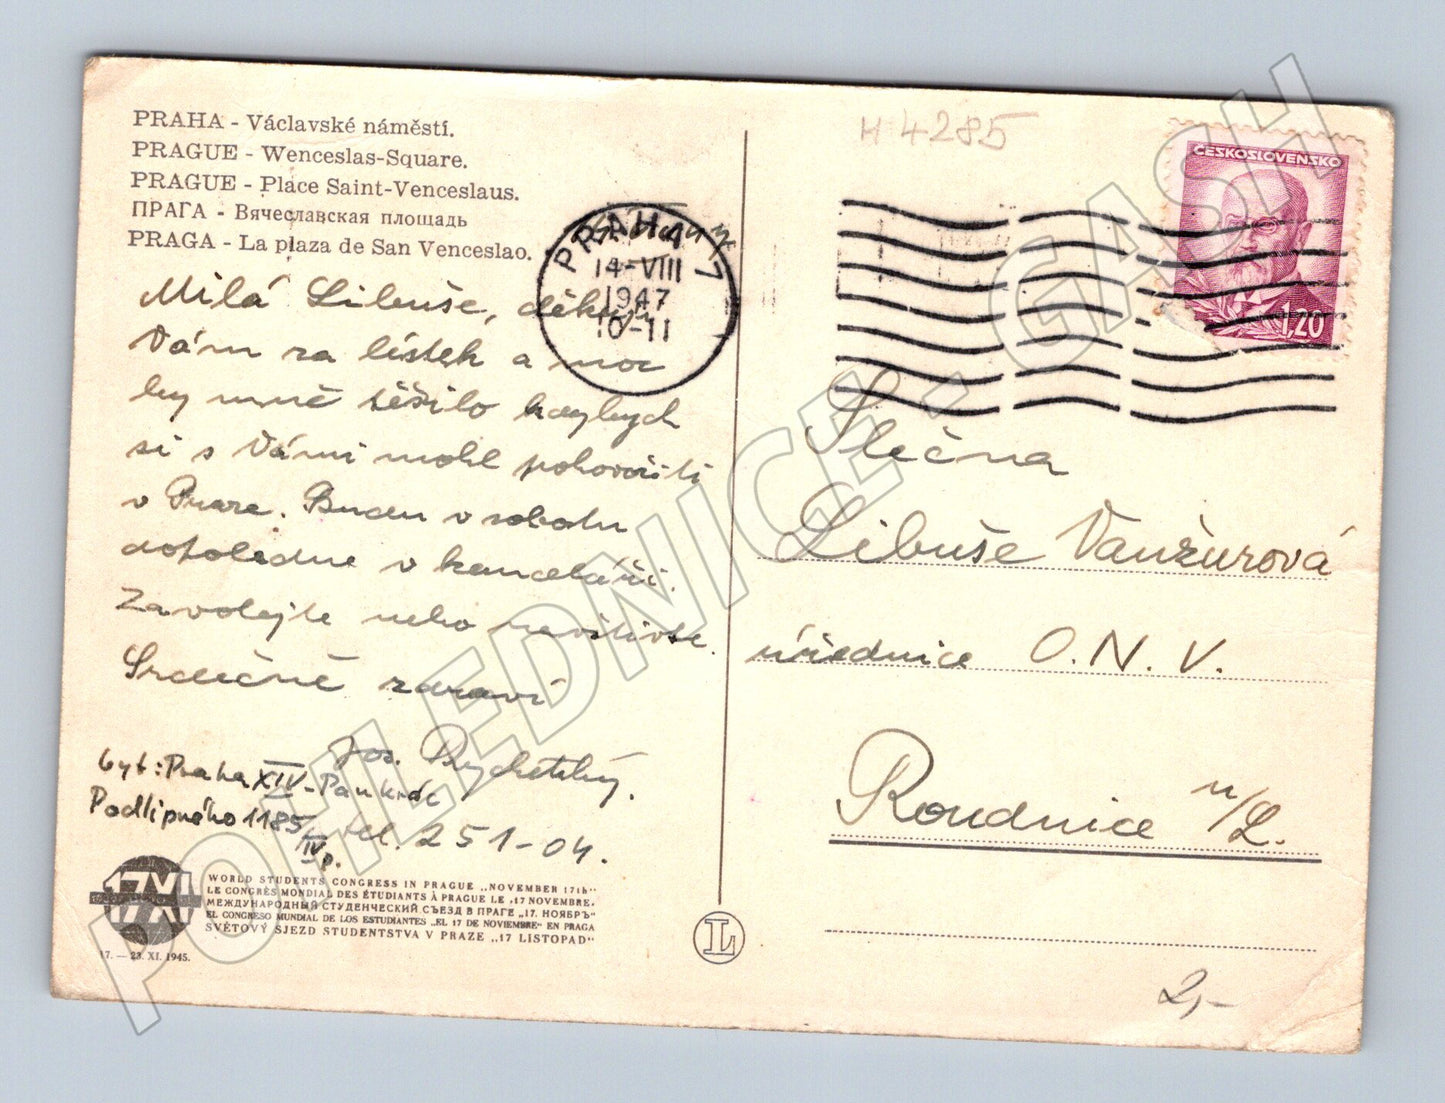 PRAHA - Václavské náměstí.
PRAGUE - Wenceslas-Square.
PRAGUE - Place Saint-Venceslaus.
ПРАГА - Вячеславская площадь
PRAGA - La plaza de San Venceslao.
H 4285
ČESKOSLOVENSKO
1,20
PRAHA 7
14-VIII
1947
10-11
Milá Libuše, děkuji
Vám za lístek a moc
by mně těšilo kdybych
si s Vámi mohl pohovořiti
v Praze. Budu v sobotu
dopoledne v kanceláři.
Zavolejte nebo navštivte.
Srdečně zdraví
Jos. Rychetský.
byt: Praha XIV - Pankrác
Podlipného 1185/IV p.
tel. 251-04.
Slečna
Libuše Vanžurová
úřednice O. N. V.
Roudnice n/L.
17 XI
17 XI
17. — 23. XI. 1945.
WORLD STUDENTS CONGRESS IN PRAGUE „NOVEMBER 17th"
LE CONGRÈS MONDIAL DES ÉTUDIANTS À PRAGUE LE „17 NOVEMBRE.
МЕЖДУНАРОДНЫЙ СТУДЕНЧЕСКИЙ СЪЕЗД В ПРАГЕ „17. НОЯБРЬ"
EL CONGRESO MUNDIAL DE LOS ESTUDIANTES „EL 17 DE NOVIEMBRE" EN PRAGA
SVĚTOVÝ SJEZD STUDENTSTVA V PRAZE „17 LISTOPAD"
L
2,-
POHLEDNICE - GASH